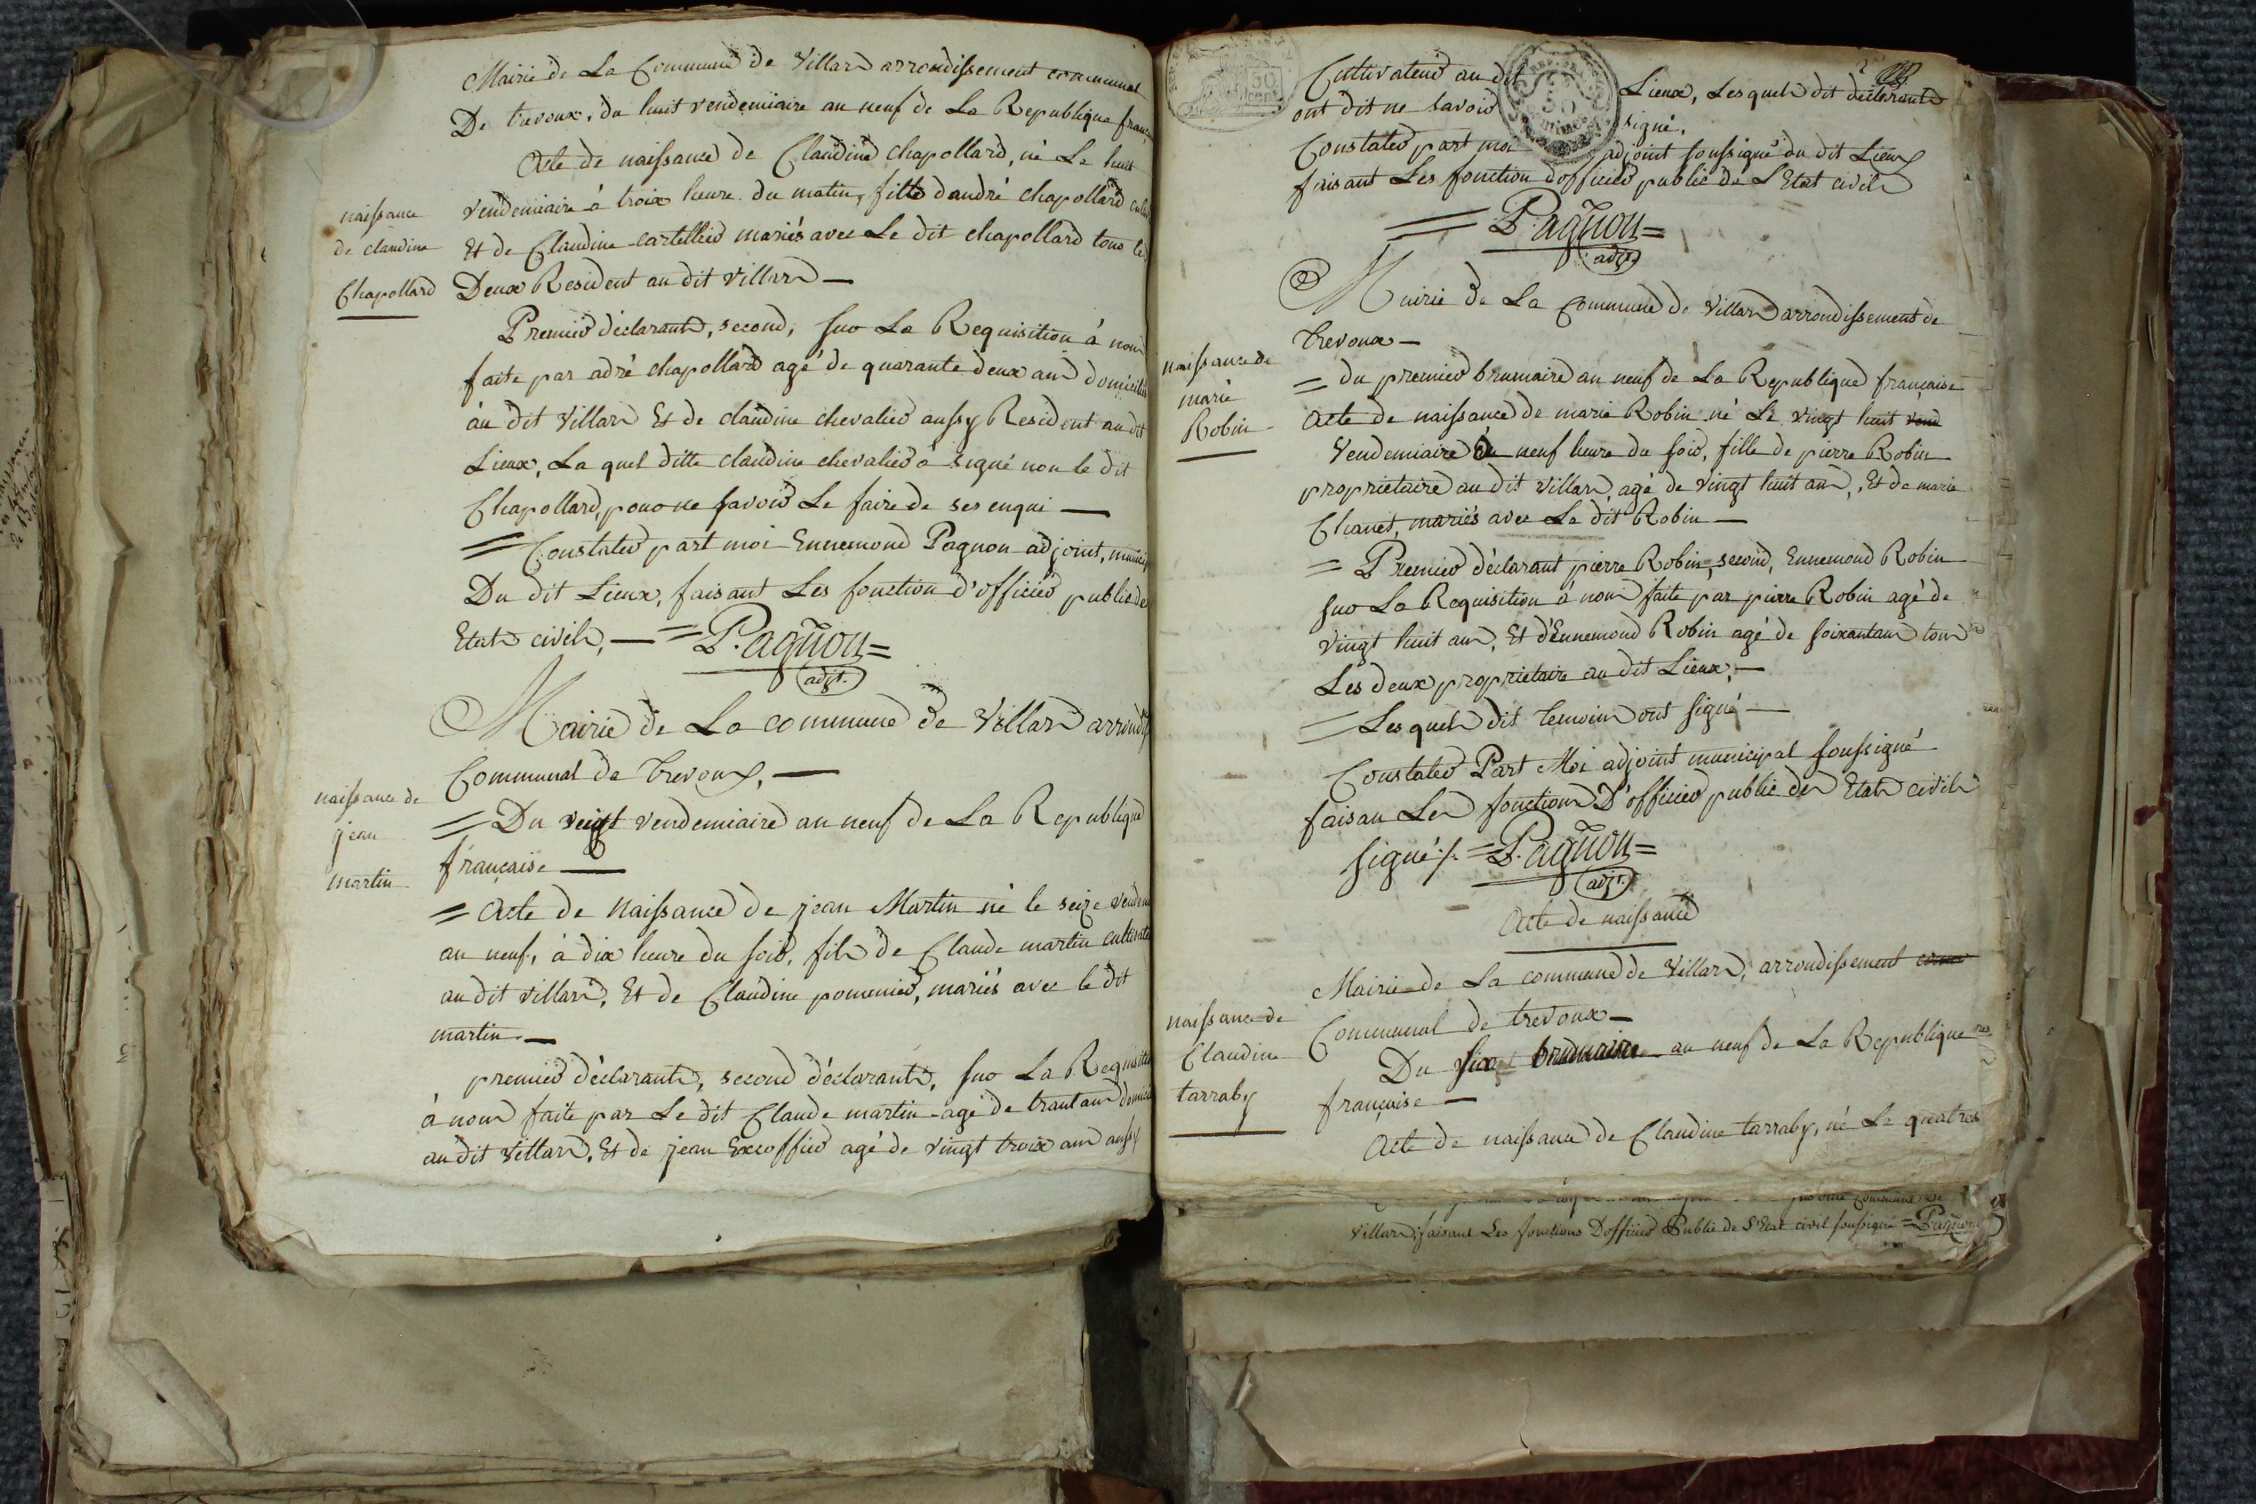 Mairie de La Commune de Villard arrondissement communal
De trevoux, du huit vendemiaire an neuf de La Republique franç
Acte de naissance de Claudine chapollard, né Le huit
vendemiaire à troix heure du matin, fille d'andré chapollard cult
naissance
de claudine
Chapollard
Et de Claudine cartellier mariés avec Le dit chapollard tous le
Deux Resident au dit villard —
Premier déclarant, second, sur La Requisition à nous
faite par adré chapollard agé de quarante deux ans domicilié
au dit Villard Et de claudine chevalier aussy Resident au dit
Lieux, La quel ditte claudine chevalier à signé non le dit
Chapollard, pour ne savoir Le faire de ses enqui —
= Constater part moi Ennemond Pagnon adjoint, munici
Du dit Lieux, faisant Les fonction d'officier public de
Etat civile, — = P. agnon =
adjt.
Mairie de La commune de Villard arrondis
Communal de Trevoux, —
naissance de
jean
martin
= Du veigt vendemiaire an neuf de La Republique
française —
= Acte de Naissance de jean Martin né le seize vende
an neuf, à dix heure du soir, fils de Claude martin cultivate
au dit villard, Et de Claudine pomenier, mariés avec le dit
martin —
premier déclarant, second déclarant, sur La Requisiti
à nous faite par Le dit Claude martin agé de trantans domici
au dit Villard, Et de jean Excoffier agé de vingt troix ans aussy
Cultivateur au dit Lieux, Lesquels dit déclarants
ont dit ne savoir signé.
Constater part moi adjoint soussigné du dit Lieux
faisant Les fonction d'officier public de L'Etat civile
= P. agnon =
adjt.
Mairie de La Commune de Villard arrondissement de
Trevoux —
naissance de
marie
Robin
= du premier brumaire an neuf de La Republique française
Acte de naissance de marie Robin né Le vingt huit vend
Vendemiaire à neuf heure du soir, fille de pierre Robin
proprietaire au dit Villard, agé de vingt huit ans, Et de marie
Chanet, mariés avec Le dit Robin —
= Premier déclarant pierre Robin, second, Ennemond Robin
sur La Requisition à nous faite par pierre Robin agé de
vingt huit ans, Et d'Ennemond Robin agé de soixantans tous
Les deux proprietaire au dit Lieux, —
= Les quels dit Temoins ont signé —
Constater Part Moi adjoint municipal soussigné
faisan Les fonctions D'officier public des Etats civile
signé ./. = P. agnon =
adjt.
Acte de naissance
Mairie de La commune de Villard, arrondissement comu
Communal de trevoux —
naissance de
Claudine
tarraby
Du six brumaire an neuf de La Republique
française —
Acte de naissance de Claudine tarraby, né Le quatres
Villard, faisant Les fonctions D'officier Public de L'Etat civil soussigné = Pagnon